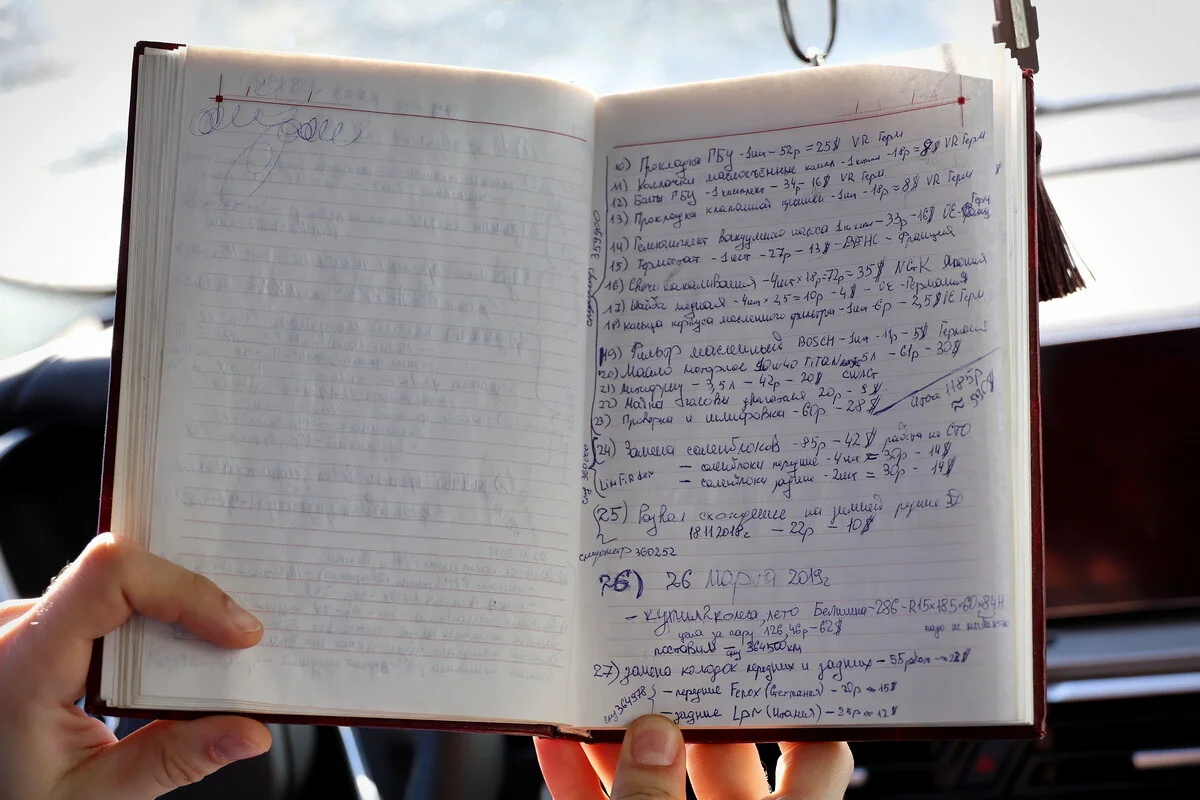 10) Прокладка ГБУ - 1шт - 52р = 25$ VR Герм
11) Колпачки маслосъёмные - 1 компл - 18р = 8$ VR Герм
12) Болты ГБУ - 1 комплект - 34р - 16$ VR Герм
13) Прокладка клапанной крышки - 1шт - 18р = 8$ VR Герм
14) Ремкомплект вакуумного насоса - 33р - 16$ OE
15) Термостат - 1шт - 27р - 13$ - Франция
16) Свечи накаливания - 4шт × 18р = 72р = 35$ NGK Япония
17) Шайба медная - 4шт × 2,5 = 10р - 4$ - OE - Германия
18) кольца корпуса масленного фильтра - 1шт 6р - 2,5$ OE Герм
19) Фильтр масленный BOSCH - 1шт - 11р - 5$ Германия
20) Масло моторное 10W40 TITAN 5л - 61р - 30$
21) Антифриз - 3,5л - 42р - 20$
22) Мойка головы двигателя 20р - 9$
23) Проверка и шлифовка - 60р - 28$
Итого 1185р
≈ $
24) Замена саленблоков - 85р - 42$ работа на СТО
- саленблоки передние - 4шт = 30р - 14$
- саленблоки задние - 2шт = 30р - 14$
25) Развал схождение на зимней резине
18.11.2018г - 22р = 10$
спидометр 360252
26) 26 марта 2019г
- купил 2 колеса, лето Белшина - 286 - R15×185×60×84H
цена за пару 126,46р - 62$
поставил - 364500км
27) замена колодок передних и задних - 55
- передние Ferox (Германия) - 30р ≈ 15$
- задние Lpr (Италия) - 25р ≈ 12$
спид 364978
спидометр 359900
спид 360000